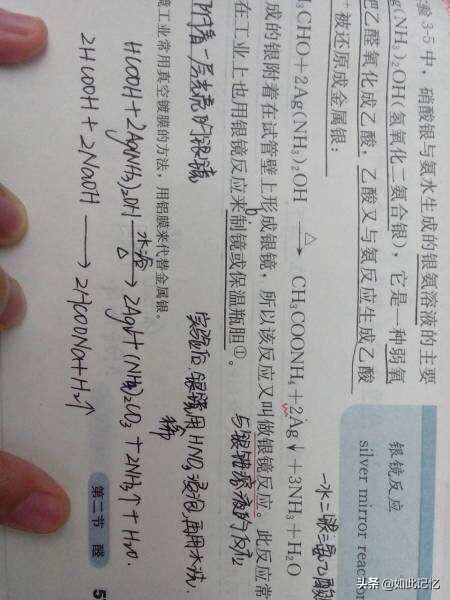 案 3-5 中，硝酸银与氨水生成的银氨溶液的主要
g(NH₃)₂OH(氢氧化二氨合银)，它是一种弱氧
把乙醛氧化成乙酸，乙酸又与氨反应生成乙酸
被还原成金属银：
₃CHO+2Ag(NH₃)₂OH —△→ CH₃COONH₄+2Ag↓+3NH₃+H₂O
成的银附着在试管壁上形成银镜，所以该反应又叫做银镜反应。此反应常
在工业上也用银镜反应来制镜或保温瓶胆①。
银镜反应
silver mirror reaction
一水二银三氨乙酸
附着一层光亮的银镜
实验后,银镜用HNO₃浸泡,再用水洗.
稀
镜工业常用真空镀膜的方法，用铝膜来代替金属银。
HCOOH+2Ag(NH₃)₂OH —水浴△→ 2Ag↓+(NH₄)₂CO₃+2NH₃↑+H₂O.
2HCOOH+2NaOH ⟶ 2HCOONa+H₂↑
第二节 醛
5
头条 @如此记忆